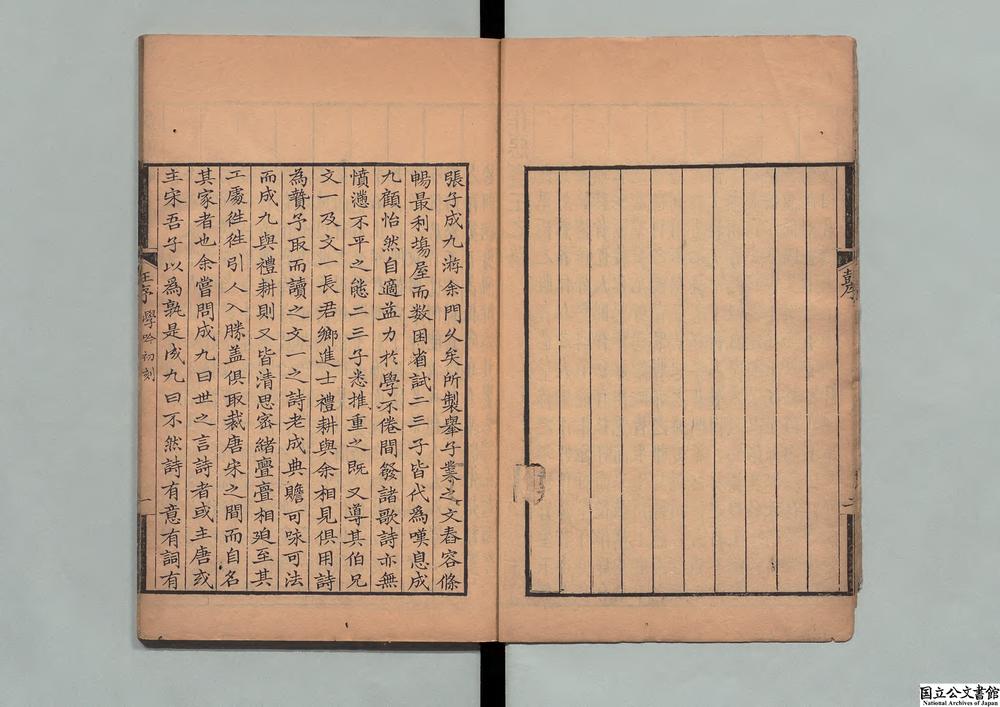 張子成九游余門久矣所製舉子業之文舂容條
暢最利塲屋而数困省試二三子皆代爲嘆息成
九顧怡然自適益力於學不倦間發諸歌詩亦無
憤懣不平之態二三子悉推重之既又導其伯兄
文一及文一長君鄉進士禮耕與余相見俱用詩
為贄予取而讀之文一之詩老成典贍可咏可法
而成九與禮耕則又皆清思宻緒亹亹相廹至其
工處徃徃引人入勝盖俱取裁唐宋之間而自名
其家者也余嘗問成九曰世之言詩者或主唐或
主宋吾子以爲孰是成九曰不然詩有意有詞有
王序 學吟初刻 一
国立公文書館
National Archives of Japan